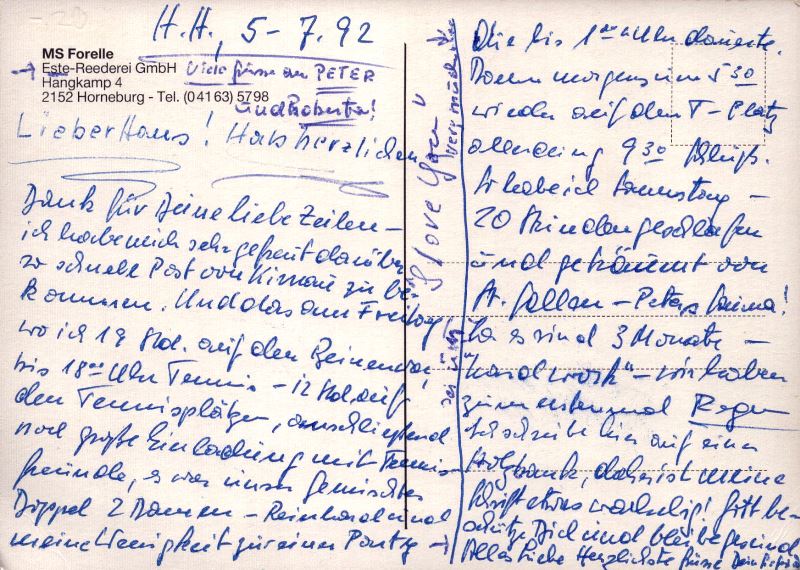 H.H, 5-7.92
MS Forelle
Este-Reederei GmbH
Hangkamp 4
2152 Horneburg - Tel. (04163) 5798
Viele Grüsse an PETER
und Roberta!
Lieber Hans! Hab herzlichen
Dank für Deine liebe Zeilen –
ich habe mich sehr gefreut darüber
so schnelle Post von zu be-
kommen. Und das am Freitag
wo ich 19 Std. auf den Beinen war!
bis 18 00 Uhr Tennis – 12 Std. auf
den Tennisplätzen, anschließend
noch große Einladung mit Tennis
freunde, es war unser gemischtes
Doppel 2 Damen – Reinhard und
meine Wenigkeit zu einer Party →
I love you"
die bis 1 00 Uhr dauerte.
Dann morgens um 5 30
wieder auf den T-Platz
allerdings 9 30 Schluß.
So habe ich Samstag –
20 Stunden geschlafen
und geträumt von
St. Gallen – Peters
Ja es sind 3 Monate –
"hard work" – wir haben
zum erstenmal Regen
Ich schreibe hier auf einer
Holzbank, daher ist meine
Schrift etwas wackelig! Gott be-
schütze Dich und bleibe gesund
Alles Liebe Herzlichste Grüsse Dein